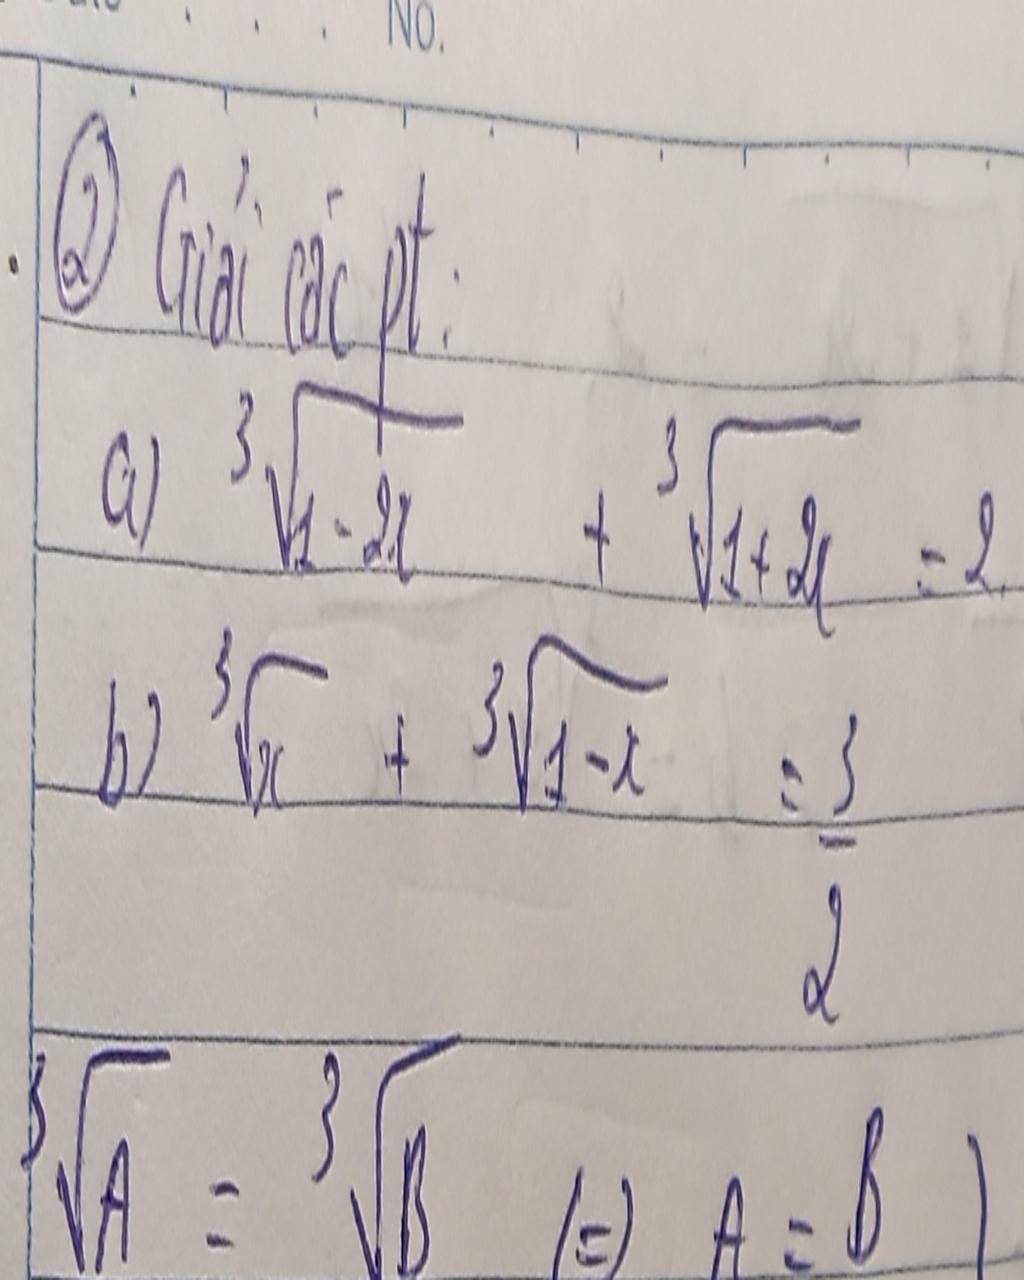 No.
② Giải các pt:
a) ∛(1-2x) + ∛(1+2x) = 2
b) ∛x + ∛(1-x) = 3/2
∛A = ∛B (=) A = B